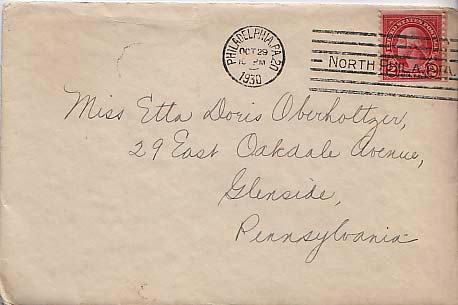 PHILADELPHIA, PA. 20
OCT 29
10 PM
1930
NORTH PHILA. PA.
UNITED STATES POSTAGE
2 2
Miss Etta Doris Oberholtzer,
29 East Oakdale Avenue,
Glenside,
Pennsylvania